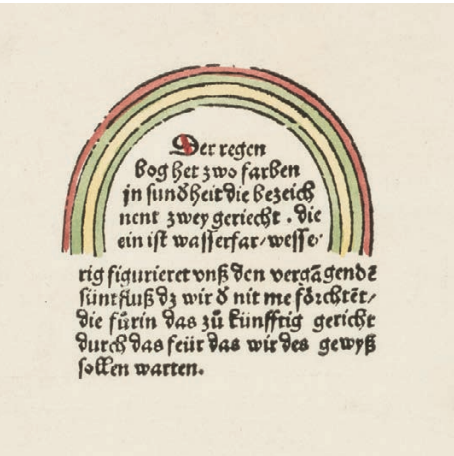 Der regen
bog het zwo farben
jn sunđheit die bezeich
nent zwey geriecht . die
ein ist wasserfar/wesse/
rig figurieret vnß den vergāgendē
süntfluß dz wir đ nit me förchtēt/
die fürin das zů künfftig gericht
durch das feür das wir des gewyß
sollen warten.